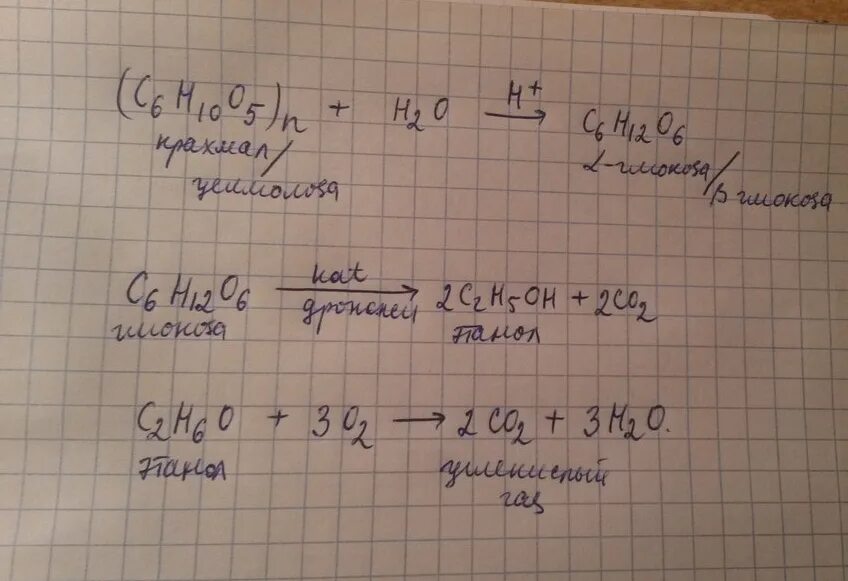 (C₆H₁₀O₅)n + H₂O —H⁺→ C₆H₁₂O₆
крахмал/ α-глюкоза/
целлюлоза β глюкоза
C₆H₁₂O₆ —kat→ 2C₂H₅OH + 2CO₂
глюкоза дрожжей этанол
C₂H₆O + 3O₂ → 2CO₂ + 3H₂O.
этанол углекислый
газ